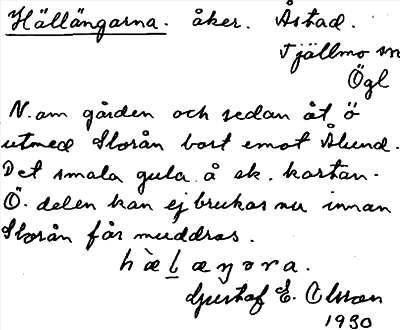 Hällängarna. åker. Åstad.
Tjällmo sn
Ögl
N. om gården och sedan åt ö
utmed Storån bort emot Ålund.
Det smala gula å ek. kartan.
Ö. delen kan ej brukas nu innan
Storån får muddras.
hæ̀ḷæŋəra.
Gustaf E. Olsson
1930